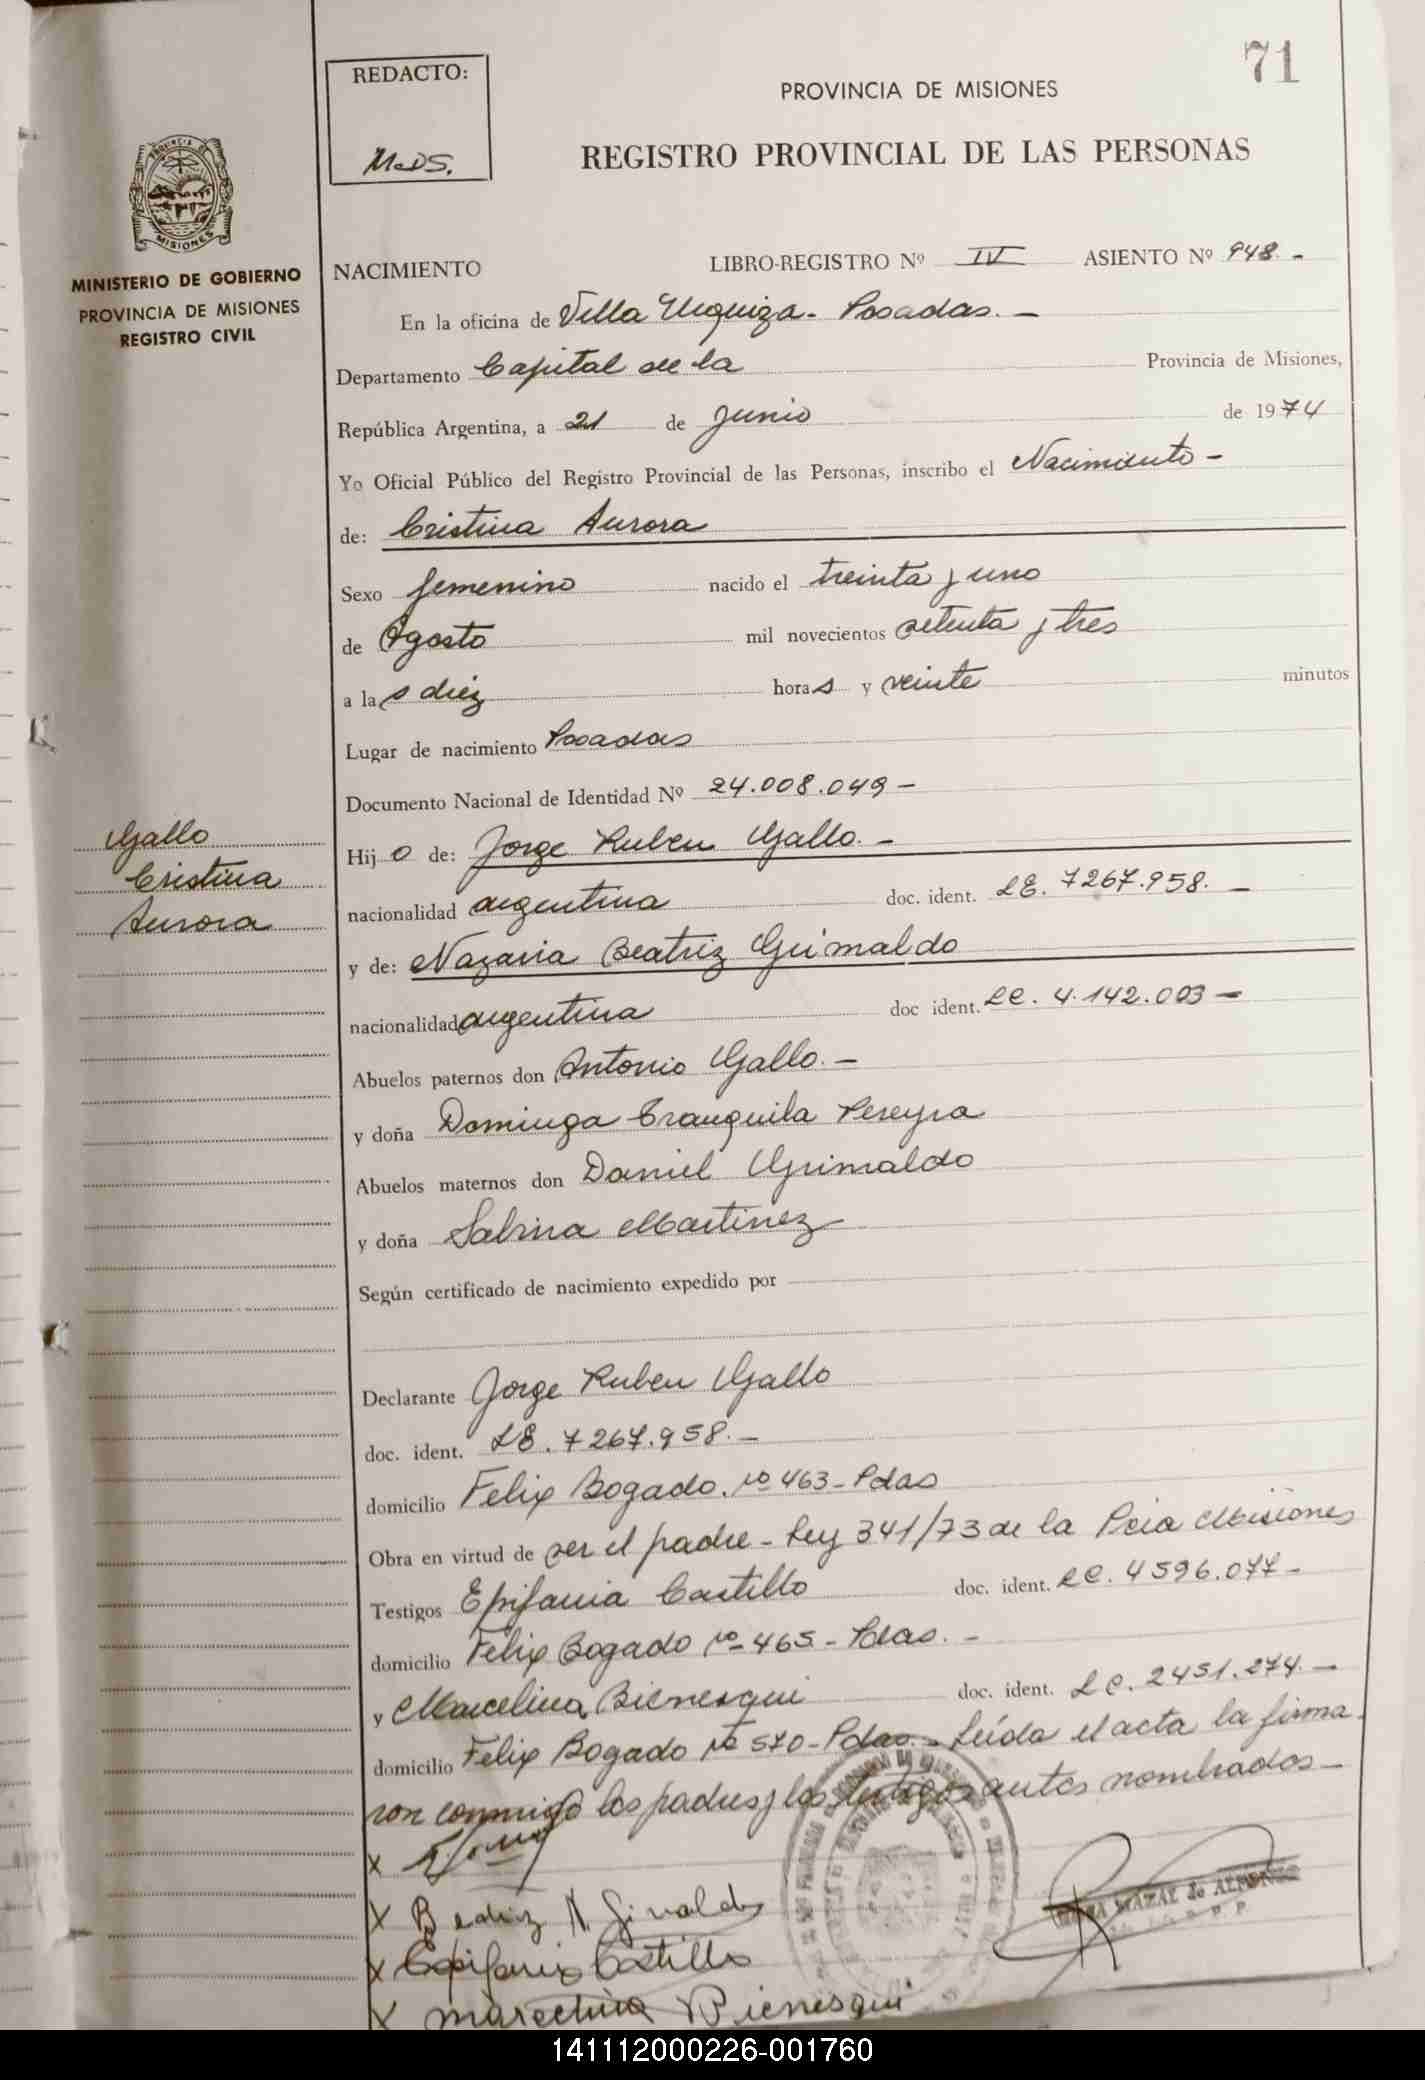 71
REDACTO:
PROVINCIA DE MISIONES
REGISTRO PROVINCIAL DE LAS PERSONAS
PROVINCIA DE
MISIONES
MINISTERIO DE GOBIERNO
PROVINCIA DE MISIONES
REGISTRO CIVIL
NACIMIENTO LIBRO-REGISTRO Nº IV ASIENTO Nº 948.-
En la oficina de Villa Urquiza - Posadas. -
Departamento Capital de la Provincia de Misiones,
República Argentina, a 21 de Junio de 1974
Yo Oficial Público del Registro Provincial de las Personas, inscribo el Nacimiento -
de: Cristina Aurora
Sexo femenino nacido el treinta y uno
de Agosto mil novecientos setenta y tres
a las diez horas y veinte minutos
Lugar de nacimiento Posadas
Documento Nacional de Identidad Nº 24.008.049 -
Gallo
Cristina
Aurora
Hijo de: Jorge Ruben Gallo. -
nacionalidad argentina doc. ident. LE. 7267.958. -
y de: Nazaria Beatriz Grimaldo
nacionalidad argentina doc ident. LC. 4.142.003 -
Abuelos paternos don Antonio Gallo. -
y doña Dominga Tranquila Pereyra
Abuelos maternos don Daniel Grimaldo
y doña Sabina Martinez
Según certificado de nacimiento expedido por
Declarante Jorge Ruben Gallo
doc. ident. LE. 7267.958. -
domicilio Felix Bogado. Nº 463 - Pdas
Obra en virtud de ser el padre - Ley 341/73 de la Pcia Misiones
Testigos Epifania Castillo doc. ident. LC. 4596.077 -
domicilio Felix Bogado Nº 465 - Pdas. -
y Marcelina Bienesqui doc. ident. LC. 2451.274. -
domicilio Felix Bogado Nº 570 - Pdas. - Leída el acta la firma
ron conmigo los padres y los testigos antes nombrados -
x
x Beatriz N. Grimaldo
x Epifania Castillo
x Marcelina Bienesqui
141112000226-001760